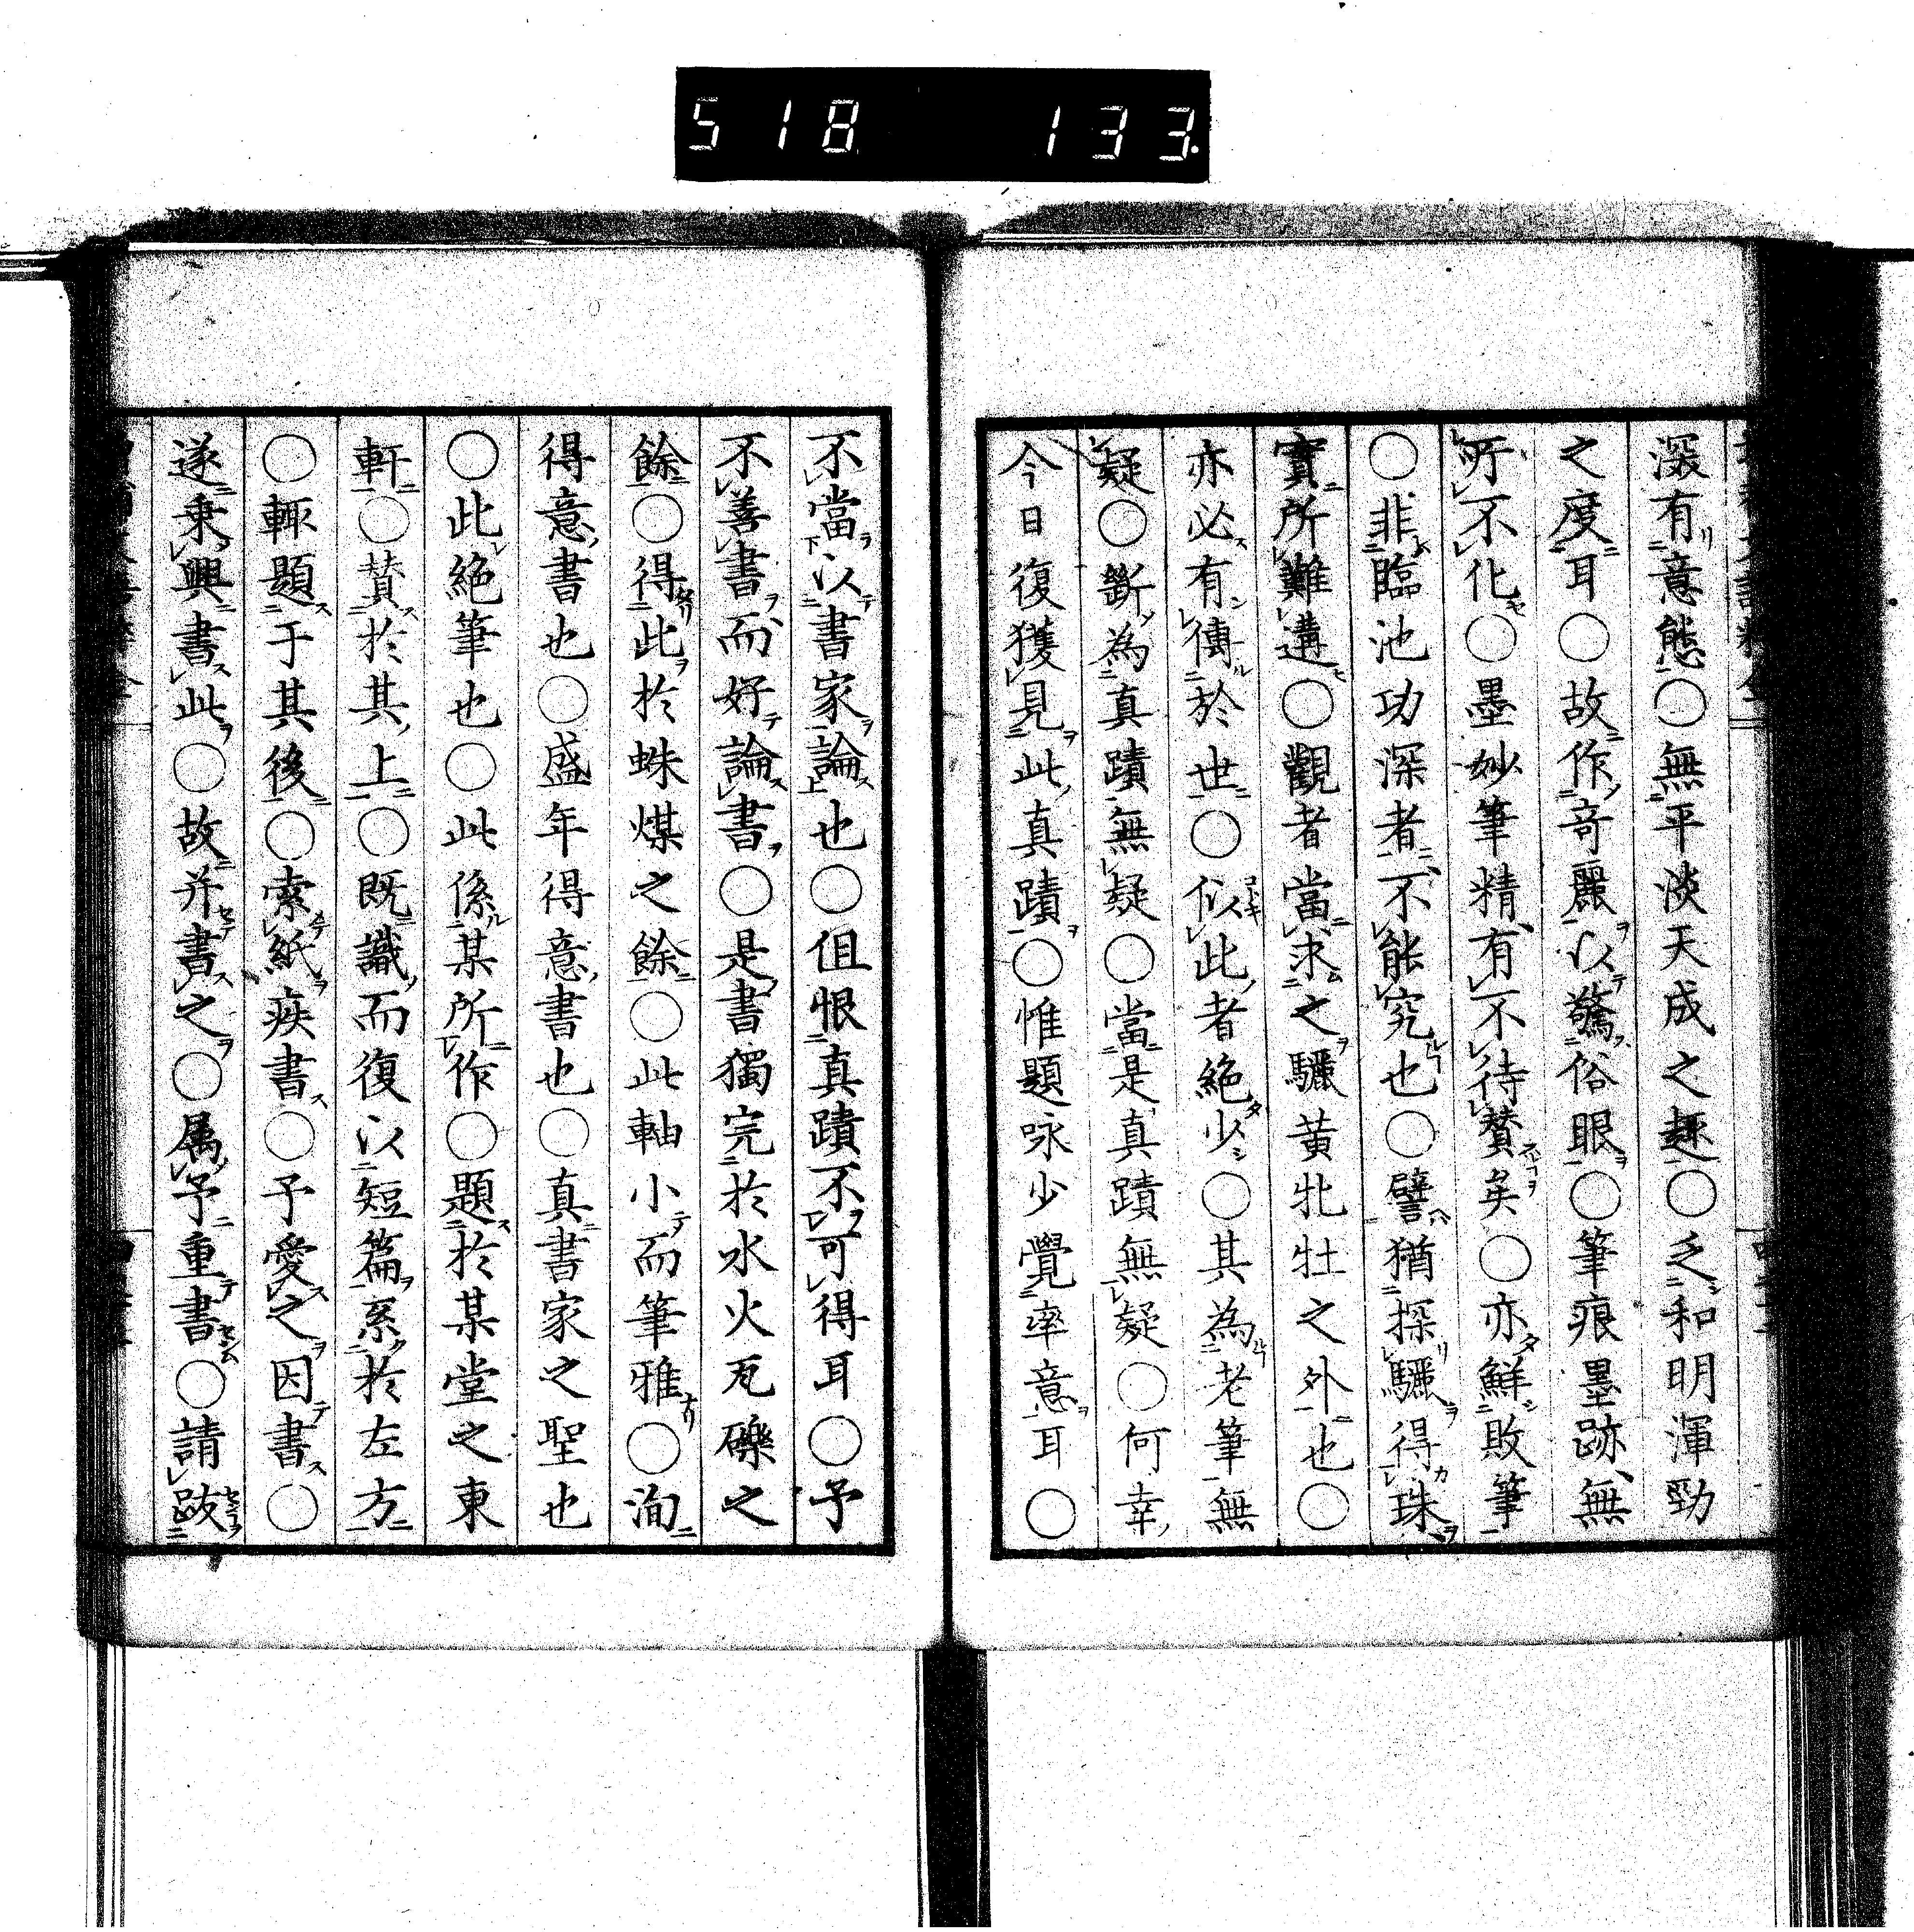 518 133
深有意態○無平淡天成之趣○乏和明渾勁
之度耳○故作奇麗以驚俗眼○筆痕墨跡無
所不化○墨妙筆精有不待贊矣○亦鮮敗筆
○非臨池功深者不能究也○譬猶探驪得珠
實所難遘○觀者當求之驪黃牝牡之外也○
亦必有傳於世○似此者絶少○其為老筆無
疑○斷為真蹟無疑○當是真蹟無疑○何幸
今日復獲見此真蹟○惟題咏少覺率意耳○
不當以書家論也○但恨真蹟不可得耳○予
不善書而好論書○是書獨完於水火瓦礫之
餘○得此於蛛煤之餘○此軸小而筆雅○洵
得意書也○盛年得意書也○真書家之聖也
○此絶筆也○此係某所作○題於某堂之東
軒○贊於其上○既識而復以短篇系於左方
○輙題于其後○索紙疾書○予愛之因書○
遂乗興書此○故并書之○属予重書○請跋